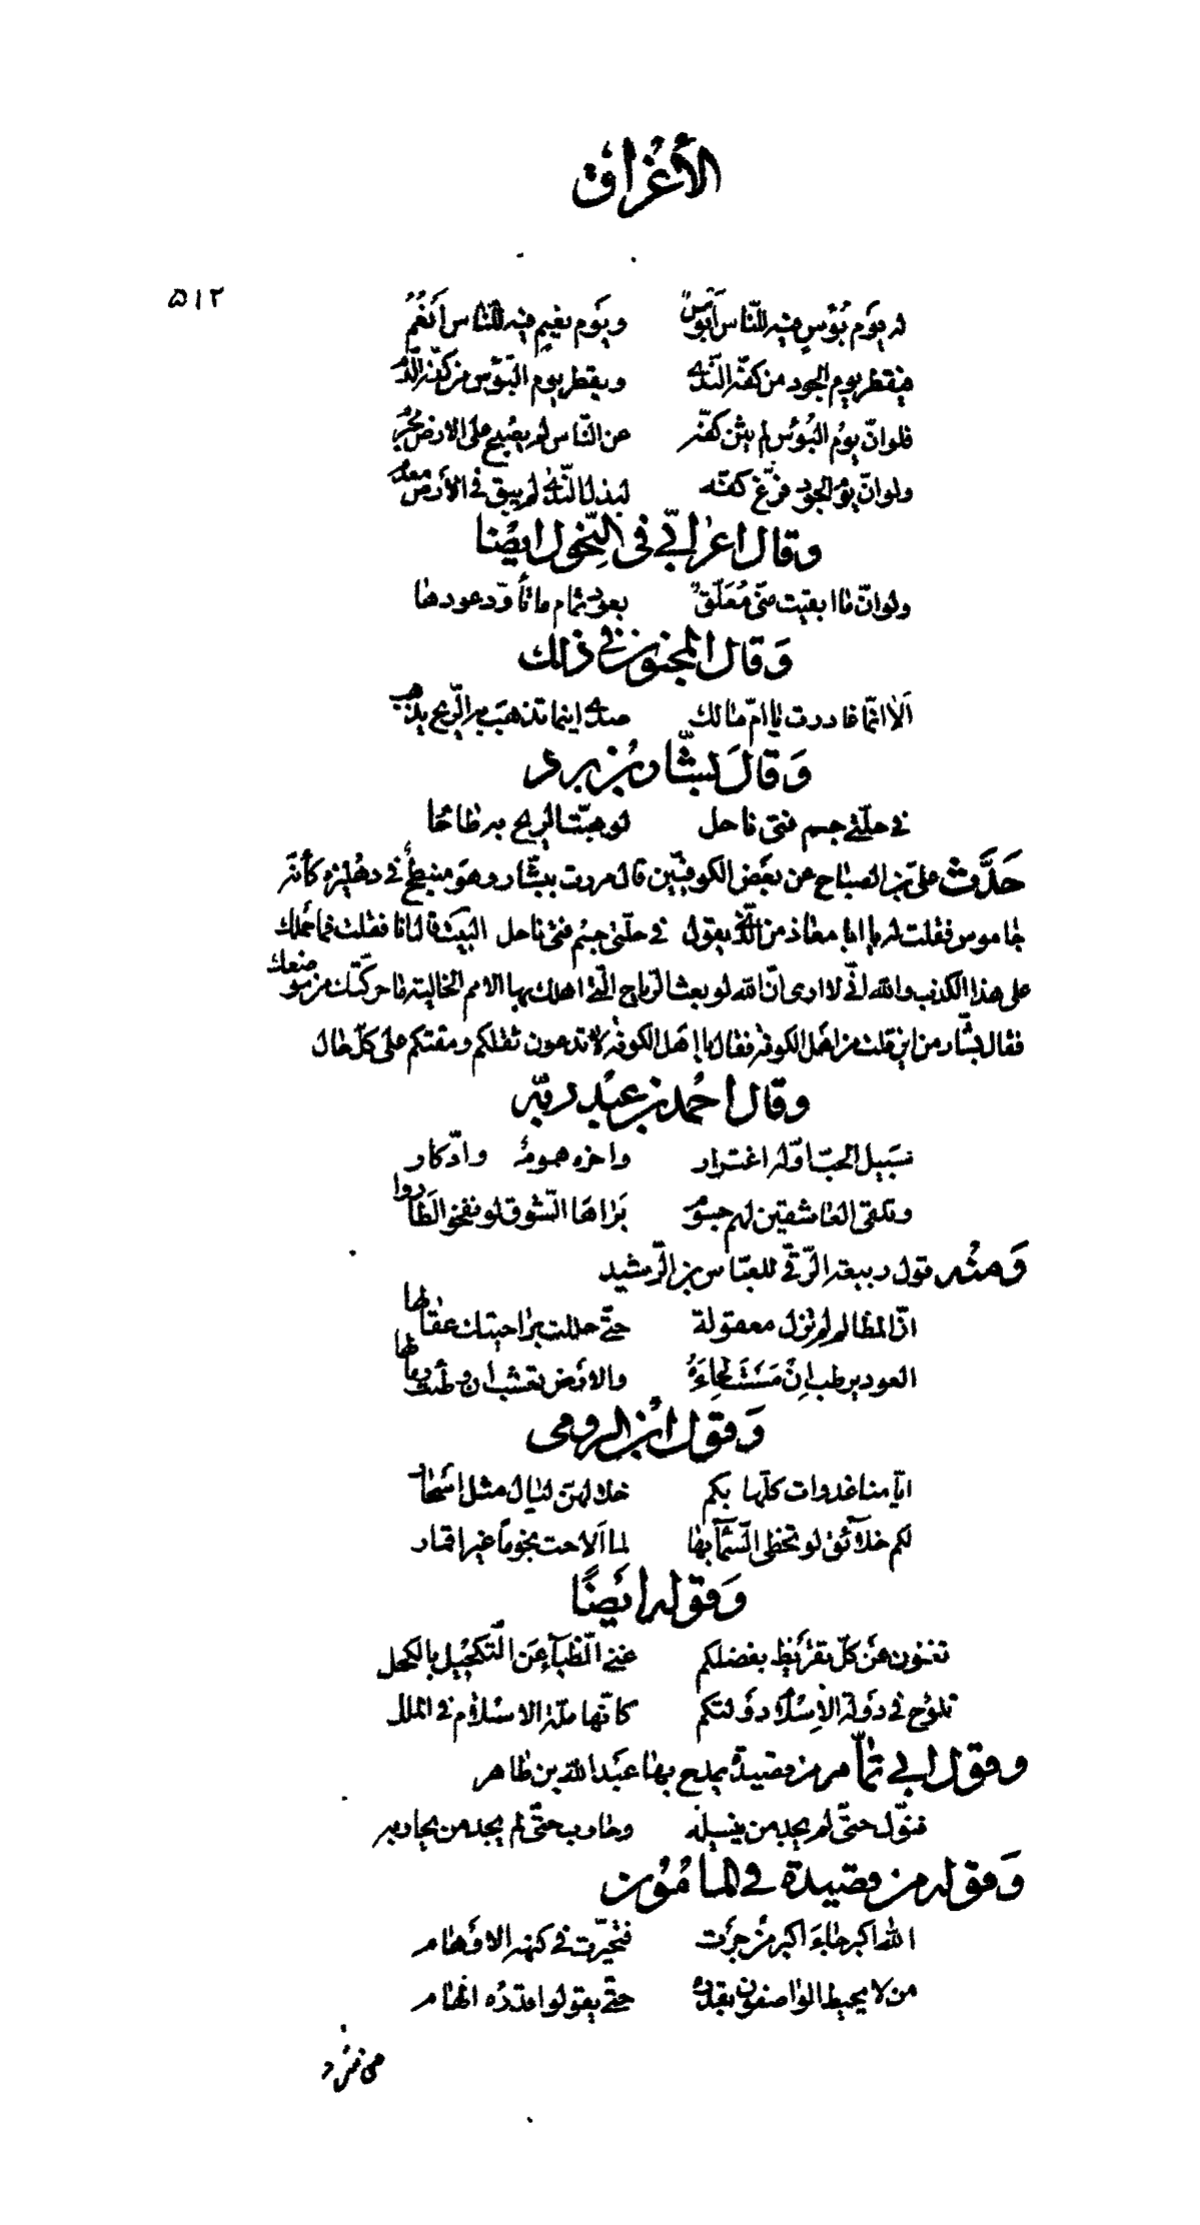 الأغراق
۵۱۲
له يوم بؤس فيه للنّاس أبؤس ويوم نعيم فيه للنّاس أنعم
فيقطر يوم الجود من كفّه النّدى ويقطر يوم البؤس من كفّه الدّم
فلوانّ يوم البؤس لم يثن كفّه عن النّاس لم يصبح على الارض مجرم
ولوانّ يوم الجود فرّغ كفّه لبذل النّدى لم يبق في الأرض معدم
وقال اعرابيّ في النّحول ايضًا
ولوانّ ما ابقيت منّى مُعَلّق بعود ثمام ما تأوّد عودها
وَقال المجنون في ذلك
اَلا انّما غادرت يا امّ مالك صدى اينما تذهب به الرّيح يذهب
وَقالَ بشّار بن برد
في حلّتي جسم فتى ناحل لو هبّت الريح به طاحا
حَدَّث علىّ بن الصباح عن بعض الكوفيّين قال مررت ببشّار وهو منبطح في دهليزه كأنّه
جاموس فقلت له يا ابا معاذ من الّذى يقول في حلّتي جسم فتى ناحل البيت قال انا فقلت فما حملك
على هذا الكذب والله انّي لا ارى انّ الله لو بعث الرّياح الّتي اهلك بها الامم الخالية ما حركتك من موضعك
فقال بشّار من اين قلت من اهل الكوفة فقال يا اهل الكوفة لا تدعون ثقلكم ومقتكم على كلّ حال
وقال احمد بن عبد ربّه
سَبيل الحبّ اوّله اغترار واخره هموم وادّكار
وتلقى العاشقين لهم جسوم بَراها الشّوق لو نفخوا لطاروا
وَمنْه قول ربيعة الرّقي للعبّاس بن الرّشيد
انّ المظالم لم تزل معقولة حتّى حللت براحتيك عقالها
العود يرطب اِنْ مَسَستَ لِحاءَهُ والارض تعشب ان وطئت رمالها
وَقول ابن الرومى
ايّامنا غدوات كلّها بكم خلالهنّ ليال مثل اسحار
لكم خلآئق لو تحظى السّمآ بها لما اَلاحت نجومًا غير اقمار
وَقوله ايضًا
تغنون عن كلّ تقريظ بفضلكم غني الظبآء عن التّكحيل بالكحل
تلوح في دولة الاِسلام دولتكم كانّها ملّة الاسلام في الملل
وقول ابي تمّام من قصيدة يمدح بها عبد الله بن طاهر
فنوّل حتّى لم يجد من ينيله وحارب حتّى لم يجد من يحاربه
وَقوله من قصيدة في المأمون
الله اكبر جاءَ اكبر من جرَت فتحيّرت في كنهه الاوهام
من لا يحيط الواصفون بقدره حتّى يقولوا قدره الهام